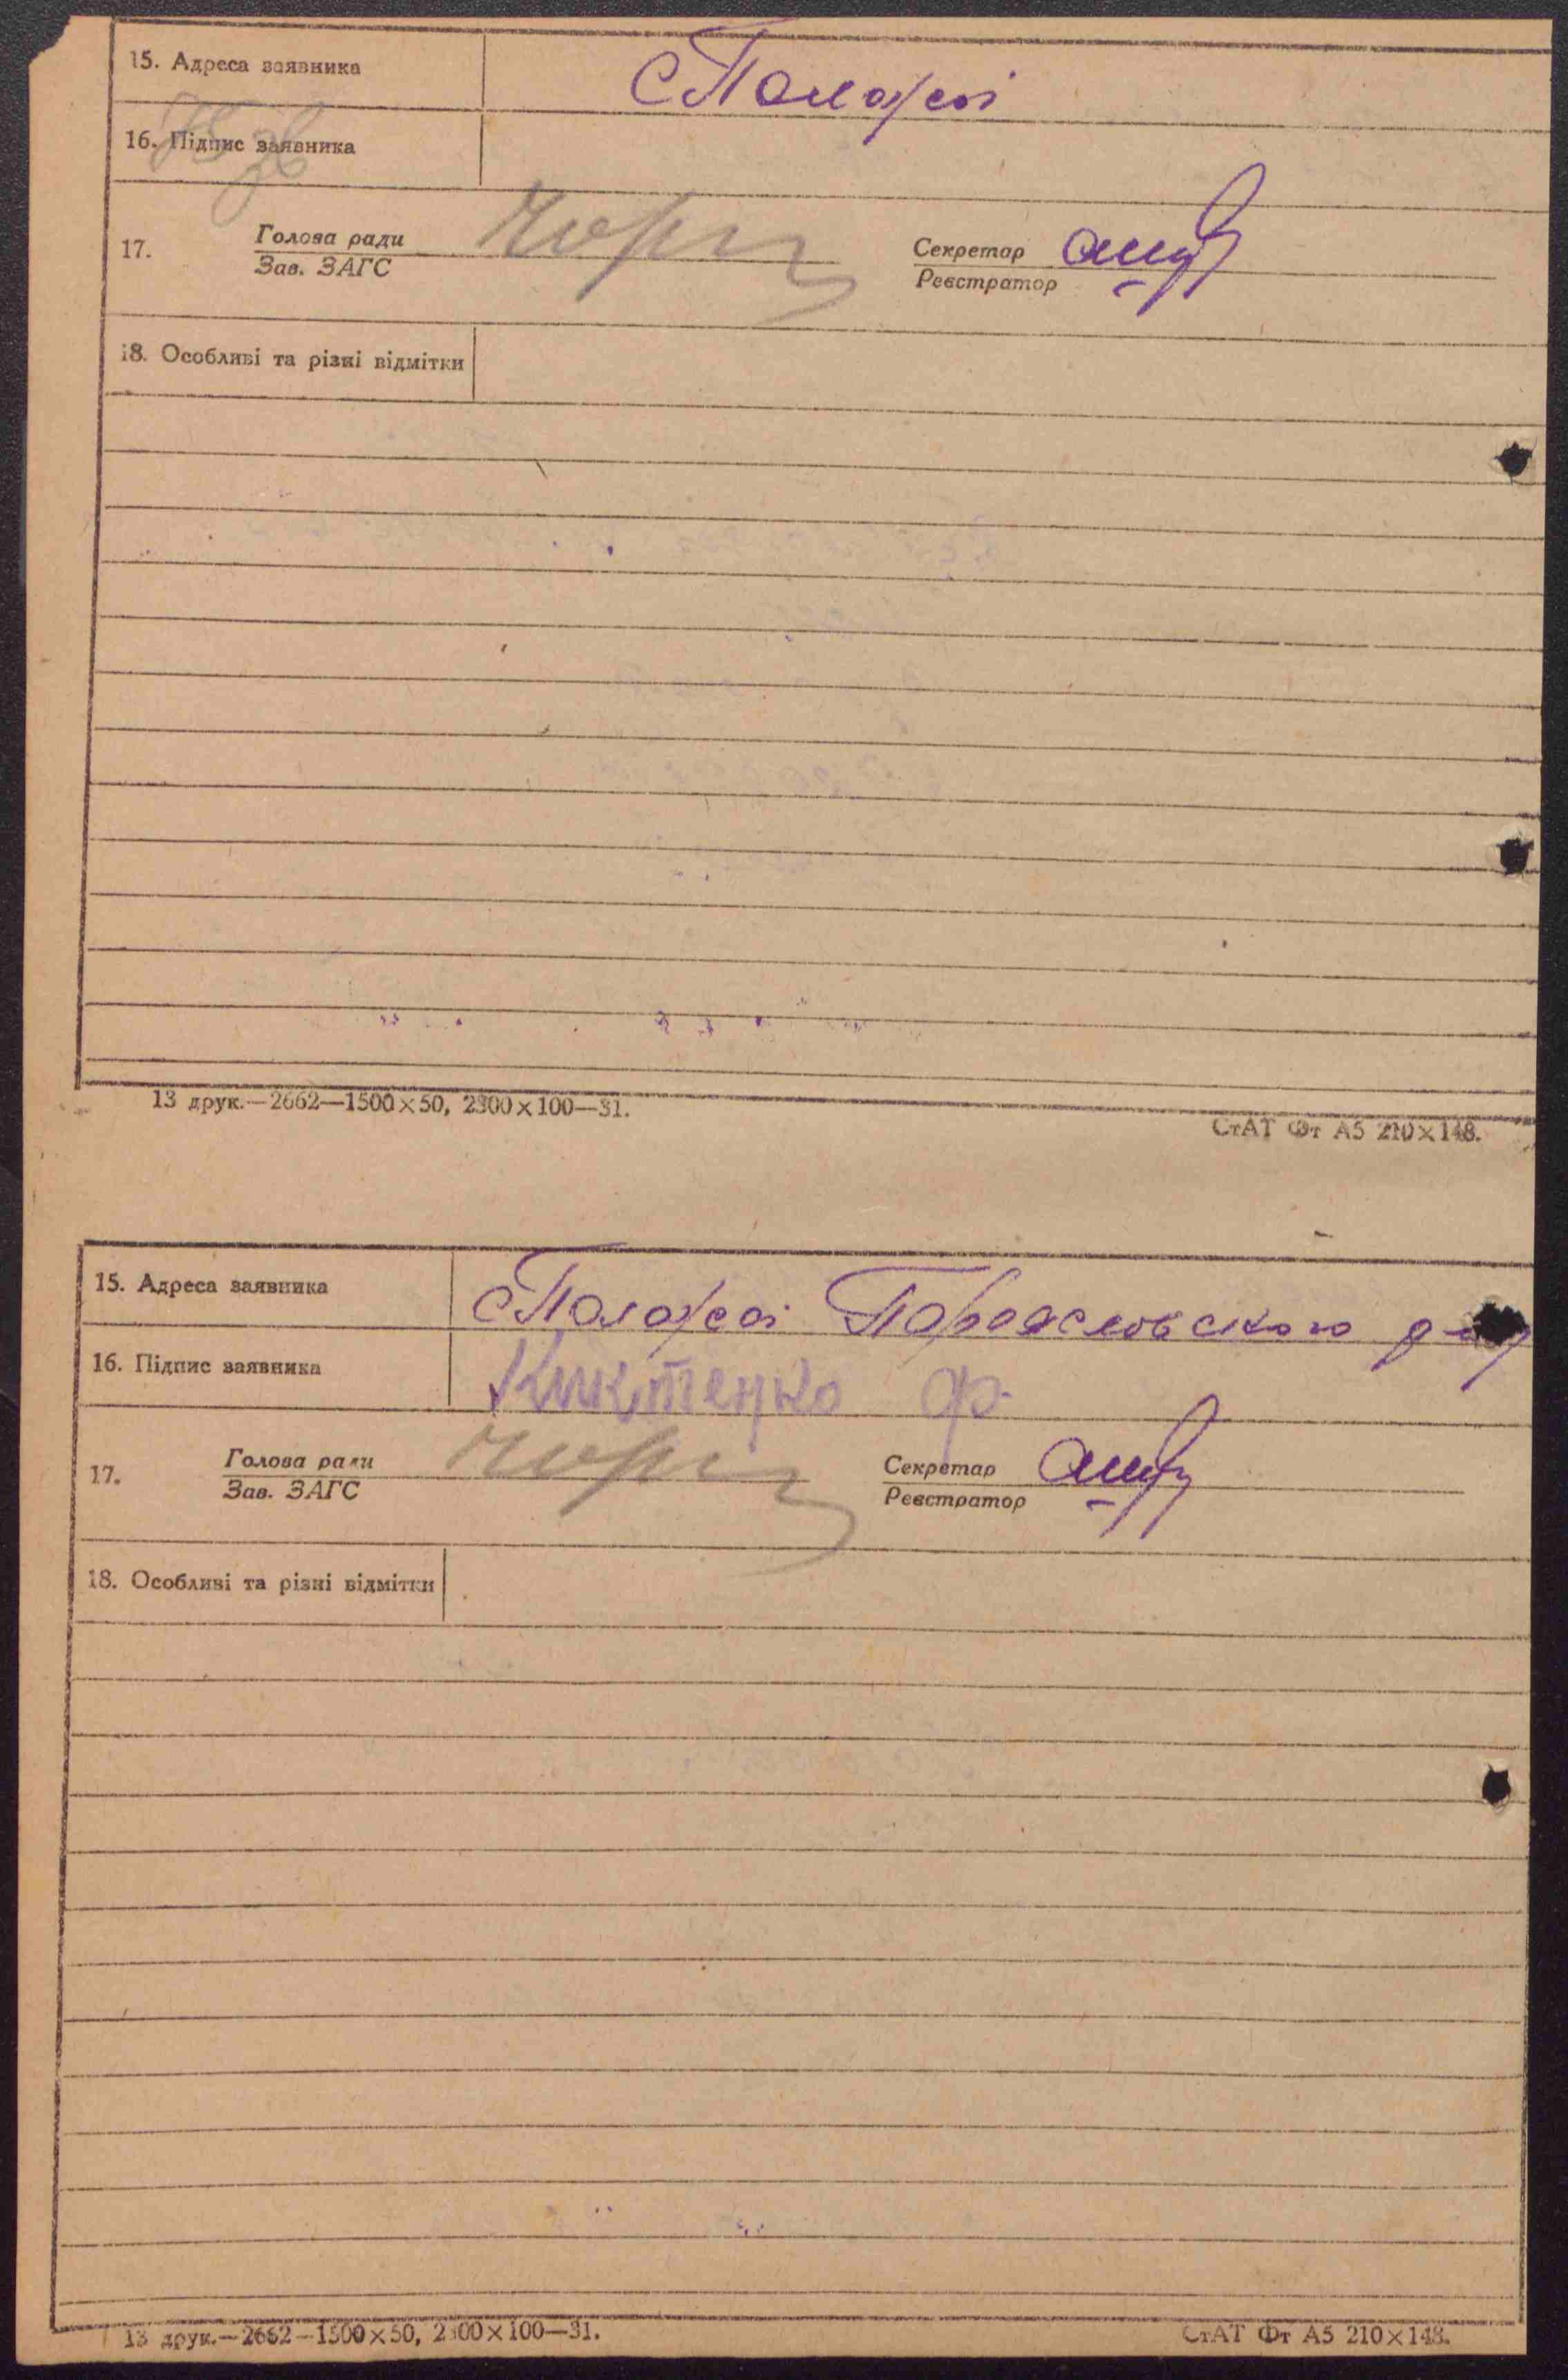 15. Адреса заявника С Положаі
16. Підпис заявника
17. Голова ради Секретар
Зав. ЗАГС Реєстратор
18. Особливі та різні відмітки
13 друк.—2662—1500×50, 2300×100—31.
СтАТ Фт А5 210×148.
15. Адреса заявника С Положаі
16. Підпис заявника Киктенко Ф.
17. Голова ради Секретар
Зав. ЗАГС Реєстратор
18. Особливі та різні відмітки
13 друк.—2662—1500×50, 2300×100—31.
СтАТ Фт А5 210×148.